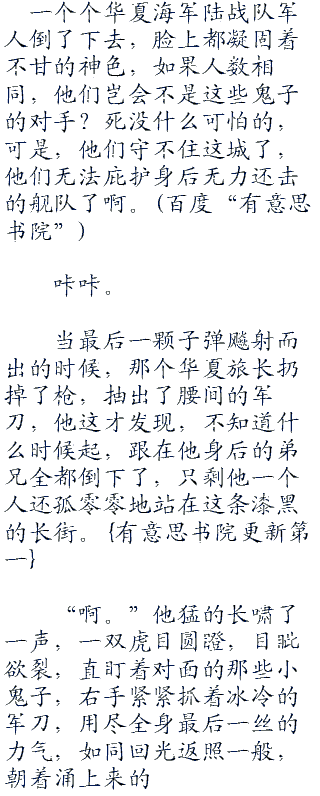 一个个华夏海军陆战队军
人倒了下去，脸上都凝固着
不甘的神色，如果人数相
同，他们岂会不是这些鬼子
的对手？死没什么可怕的，
可是，他们守不住这城了，
他们无法庇护身后无力还击
的舰队了啊。（百度“有意思
书院”）
咔咔。
当最后一颗子弹飚射而
出的时候，那个华夏旅长扔
掉了枪，抽出了腰间的军
刀，他这才发现，不知道什
么时候起，跟在他身后的弟
兄全都倒下了，只剩他一个
人还孤零零地站在这条漆黑
的长街。{有意思书院更新第
一}
“啊。”他猛的长啸了
一声，一双虎目圆蹬，目眦
欲裂，直盯着对面的那些小
鬼子，右手紧紧抓着冰冷的
军刀，用尽全身最后一丝的
力气，如同回光返照一般，
朝着涌上来的